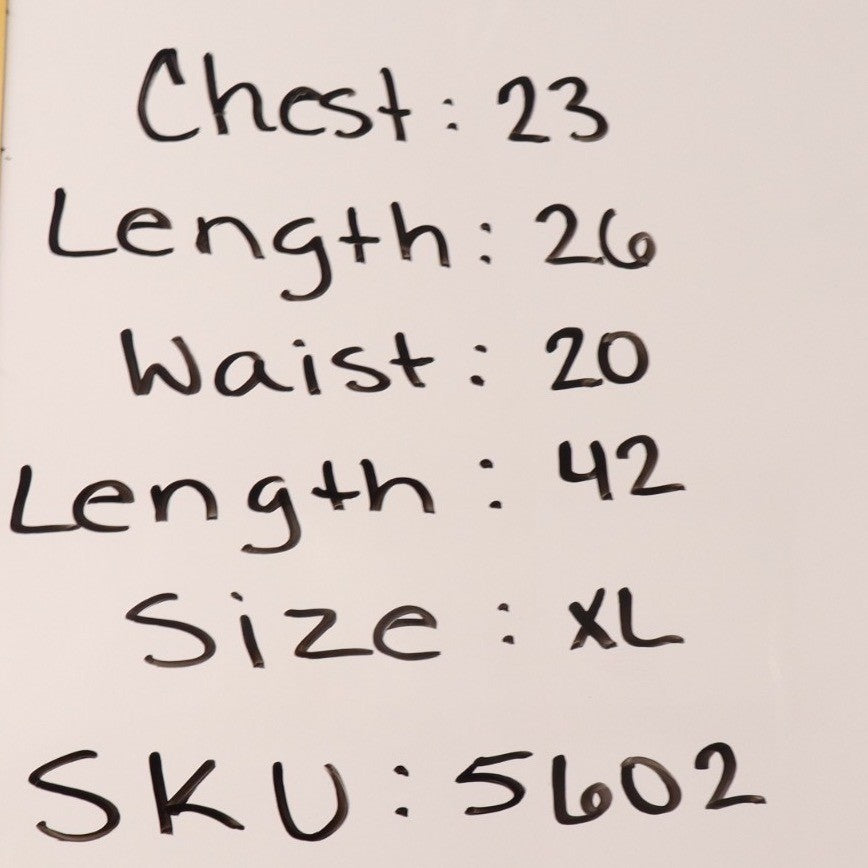 Chest: 23
Length: 26
Waist: 20
Length: 42
Size: XL
SKU: 5602